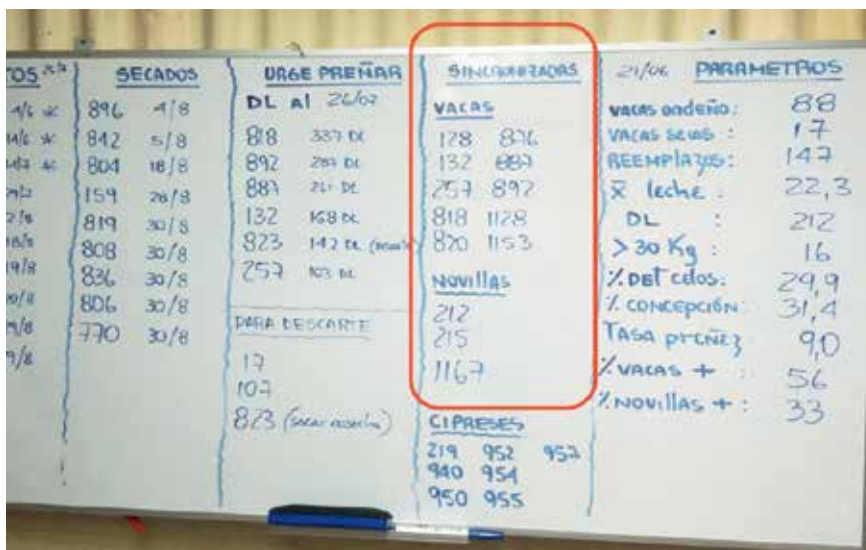 SECADOS
896 4/8
842 5/8
804 18/8
159 28/8
819 30/8
808 30/8
836 30/8
806 30/8
770 30/8
URGE PREÑAR
DL Al 26/07
818 337 DL
892 DL
887 DL
132 168 DL
823 142 DL
257 103 DL
PARA DESCARTE
17
107
823
SINCRONIZADAS
VACAS
128 876
132 887
257 892
818 1128
820 1153
NOVIllAS
212
215
1167
CIPRESES
219 952 957
940 954
950 955
21/06 PARAMETROS
VACAS ordeño: 88
VACAS SECAS : 17
REEMPlAZOS: 147
x̄ leche : 22,3
DL : 212
> 30 Kg : 16
% DET celos: 29,9
% CONCEPCIÓN 31,4
TASA preñez 9,0
% VACAS + : 56
% NOVIllAS + : 33